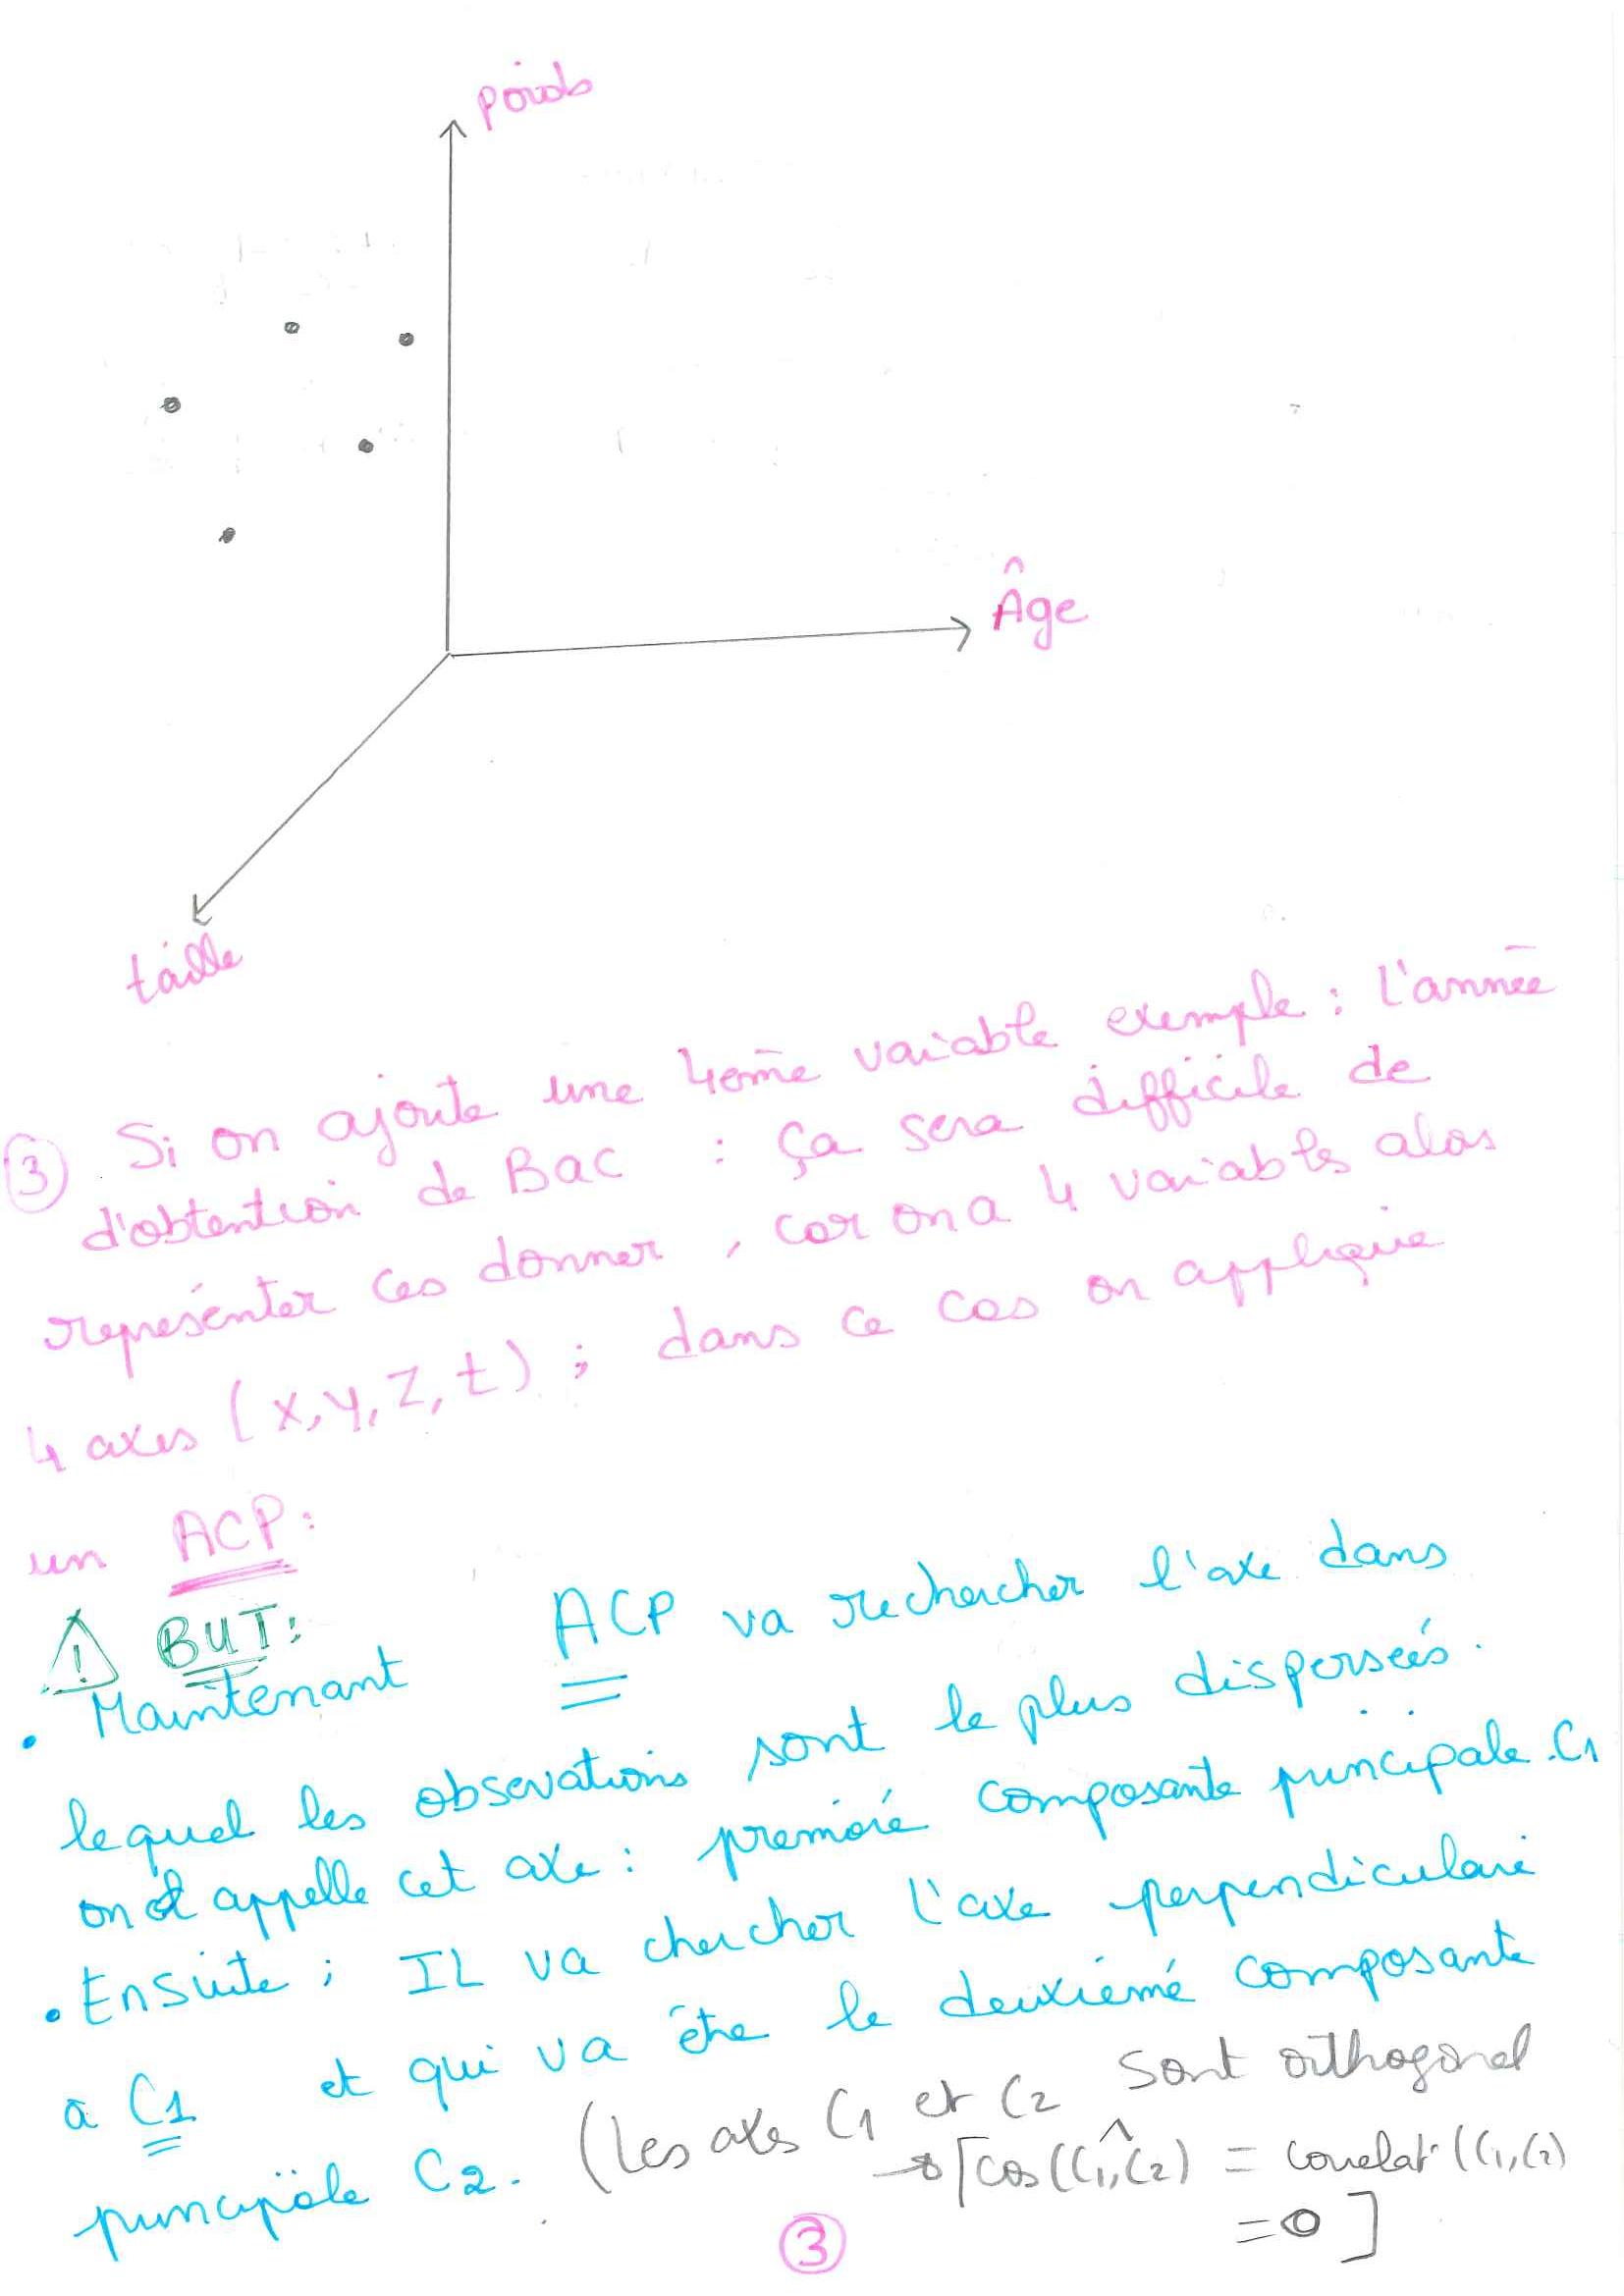 poids
Âge
taille
③ Si on ajoute une 4eme variable exemple : l'année
d'obtention de Bac : ça sera difficile de
représenter ces donner, car on a 4 variables alors
4 axes (x, y, z, t) ; dans ce cas on applique
un ACP :
⚠ BUT :
• Maintenant ACP va rechercher l'axe dans
lequel les observations sont le plus dispersées.
on appelle cet axe : premiére composante principale C1
• Ensuite ; IL va chercher l'axe perpendiculaire
à C1 et qui va être le deuxiéme composante
principale C2. (les axes C1 et C2 sont orthogonal
→ [cos(C1,C2) = correlat° (C1,C2)
= 0 ]
③